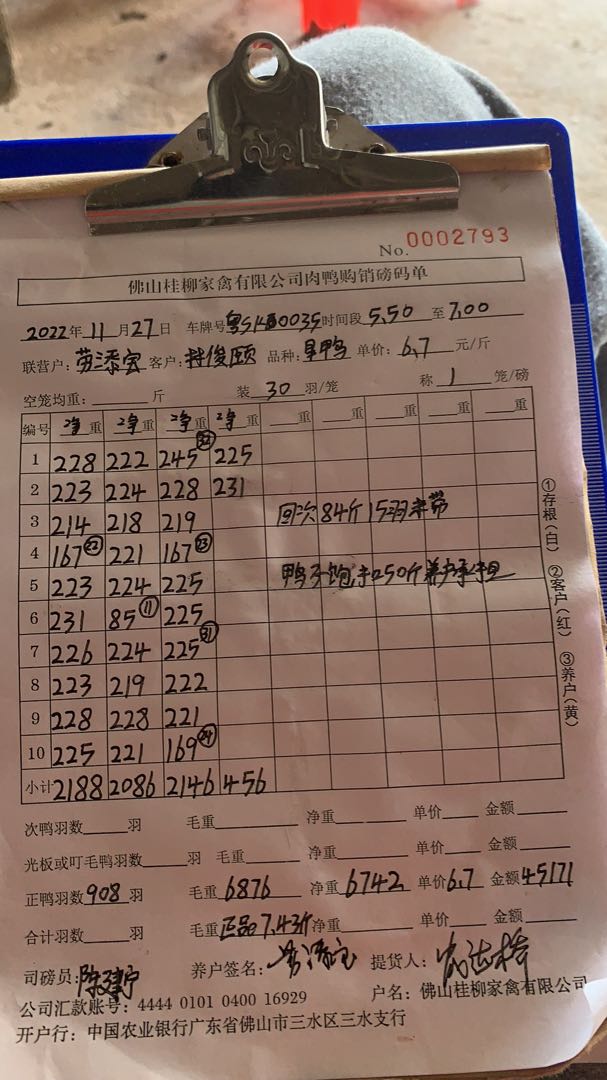 No. 0002793
佛山桂柳家禽有限公司肉鸭购销磅码单
2022年 11月27日 车牌号 0035 时间段 5.50 至 7.00
联营户: 客户: 品种: 鸭 单价: 6.7 元/斤
空笼均重: 斤 装 30 羽/笼 称 1 笼/磅
编号 净重 净重 净重 净重 重 重 重 重 重
1 228 222 245 225
2 223 224 228 231
3 214 218 219 回次84斤15羽未带
4 167 22 221 167 23
5 223 224 225 鸭子饱扣250斤养户承担
6 231 85 11 225
7 226 224 225 31
8 223 219 222
9 228 228 221
10 225 221 169 24
小计 2188 2086 2146 456
①存根(白) ②客户(红) ③养户(黄)
次鸭羽数 羽 毛重 净重 单价 金额
光板或叮毛鸭羽数 羽 毛重 净重 单价 金额
正鸭羽数 908 羽 毛重 6876 净重 6742 单价 6.7 金额 45171
合计羽数 羽 毛重 正品7.43斤 净重 单价 金额
司磅员: 养户签名: 提货人:
公司汇款账号: 4444 0101 0400 16929 户名: 佛山桂柳家禽有限公司
开户行: 中国农业银行广东省佛山市三水区三水支行